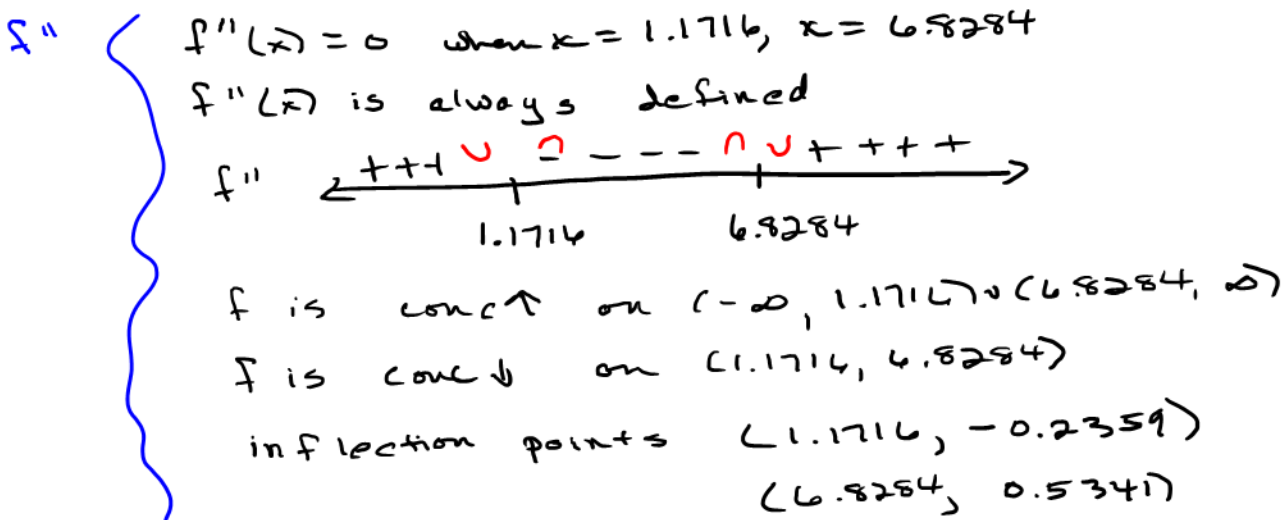 f"
f"(x) = 0 when x = 1.1716, x = 6.8284
f"(x) is always defined
+++ ∪ ∩ - - - - ∩ ∪ + + + +
f"
1.1716 6.8284
f is conc↑ on (-∞, 1.1716) ∪ (6.8284, ∞)
f is conc↓ on (1.1716, 6.8284)
inflection points (1.1716, -0.2359)
(6.8284, 0.5341)